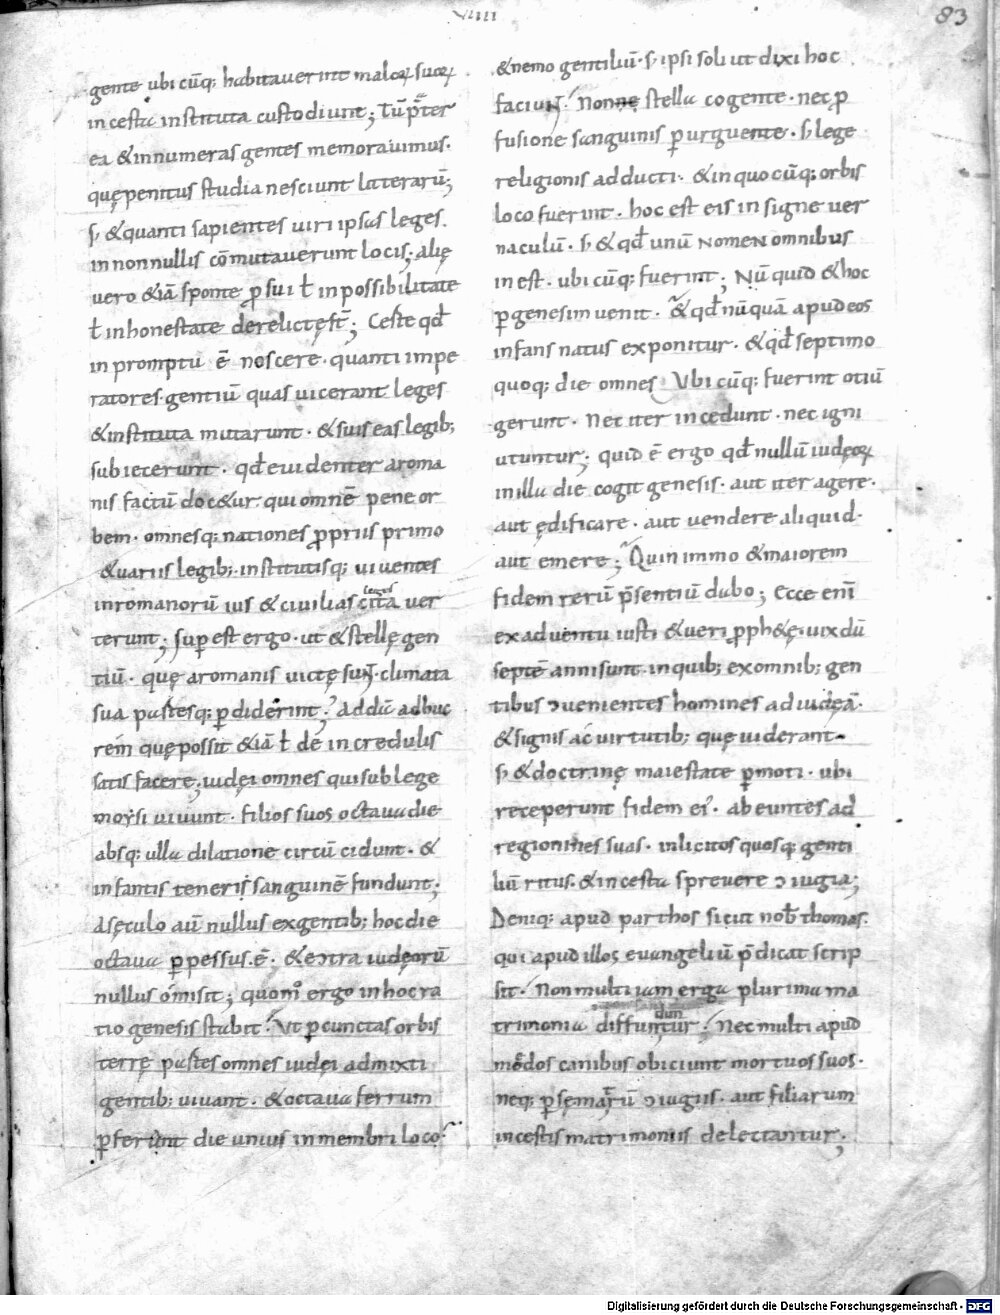 VIIII
83
gente ubi cūq; habitauerint maloꝝ suoꝝ
incesta instituta custodiunt; Tū p̄ter
ea & innumeras gentes memorauimus.
quę penitus studia nesciunt litterarū;
s; & quanti sapientes uiri ipsas leges.
in nonnullis cōmutauerunt locis; alię
uero &iā sponte ꝓ sui ł inpossibilitate
ł inhonestate derelictę s̄t; Certe qd̄
in promptu ē noscere. quanti impe
ratores gentiū quas uicerant leges
& instituta mutarunt. & suis eas legib;
subiecerunt. qd̄ euidenter a roma
nis factū doc&ur. qui omnē pene or
bem. omnesq; nationes ꝓpriis primo
& uariis legib; institutisq; uiuentes
in romanorū ius & ciuilia scita uer
leges
terunt; Supest ergo. ut & stellę gen
tiū. quę a romanis uictę sunt. climata
sua partesq; ꝑdiderint; Addā adhuc
rem quę possit &iā ł de incredulis
satis facere; iudei omnes qui sub lege
moysi uiuunt. filios suos octaua die
absq; ulla dilatione circūcidunt. &
infantis teneris sanguinē fundunt;
A sęculo aū nullus ex gentib; hoc die
octaua ꝑpessus.ē. & ectra iudęorū
nullus omisit; quom̄ ergo in hoc ra
tio genesis stabit? Ut ꝑ cunctas orbis
terrę partes omnes iudęi admixti
gentib; uiuant. & octaua ferrum
ꝑferunt die unius in membri loco
& nemo gentiliū. s; ipsi soli ut dixi hoc
faciunt. Non stella cogente. nec ꝓ
fusione sanguinis ꝑurguente. s; lege
religionis adducti. & in quocūq; orbis
loco fuerint. hoc est eis insigne uer
naculū. s; & qd̄ unū nomen omnibus
inest. ubicūq; fuerint; Nūquid & hoc
ꝑ genesim uenit. & qd̄ nūquā apud eos
infans natus exponitur. & qd̄ septimo
quoq; die omnes Ubicūq; fuerint otiū
gerunt. Nec iter incedunt. nec igni
utuntur; quid ē ergo qd̄ nullū iudęoꝝ
in illa die cogit genesis. aut iter agere.
aut ędificare. aut uendere aliquid.
aut emere; Quin immo & maiorem
fidem rerū p̄sentiū dabo; Ecce eni
ex aduentu iusti & ueri ꝓph&ę. uix dū
septē anni sunt. in quib; ex omnib; gen
tibus ↄuenientes homines ad iudęā.
& signis ac uirtutib; quę uiderant.
s; & doctrinę maiestate ꝑmoti. ubi
receperunt fidem ei. abeuntes ad
regiones suas. inlicitos quosq; genti
liū ritus. & incesta spreuere ↄiugia;
Deniq; apud parthos sicut nob̄ thomas.
qui apud illos euangeliū p̄dicat scrip
sit. Non multi iam erga plurima ma
trimonia diffuntur. Nec multi apud
dun
mēdos canibus obiciunt mortuos suos.
neq; ꝑsę matrū ↄiugiis. aut filiarum
incestis matrimoniis delectantur.
Digitalisierung gefördert durch die Deutsche Forschungsgemeinschaft - DFG